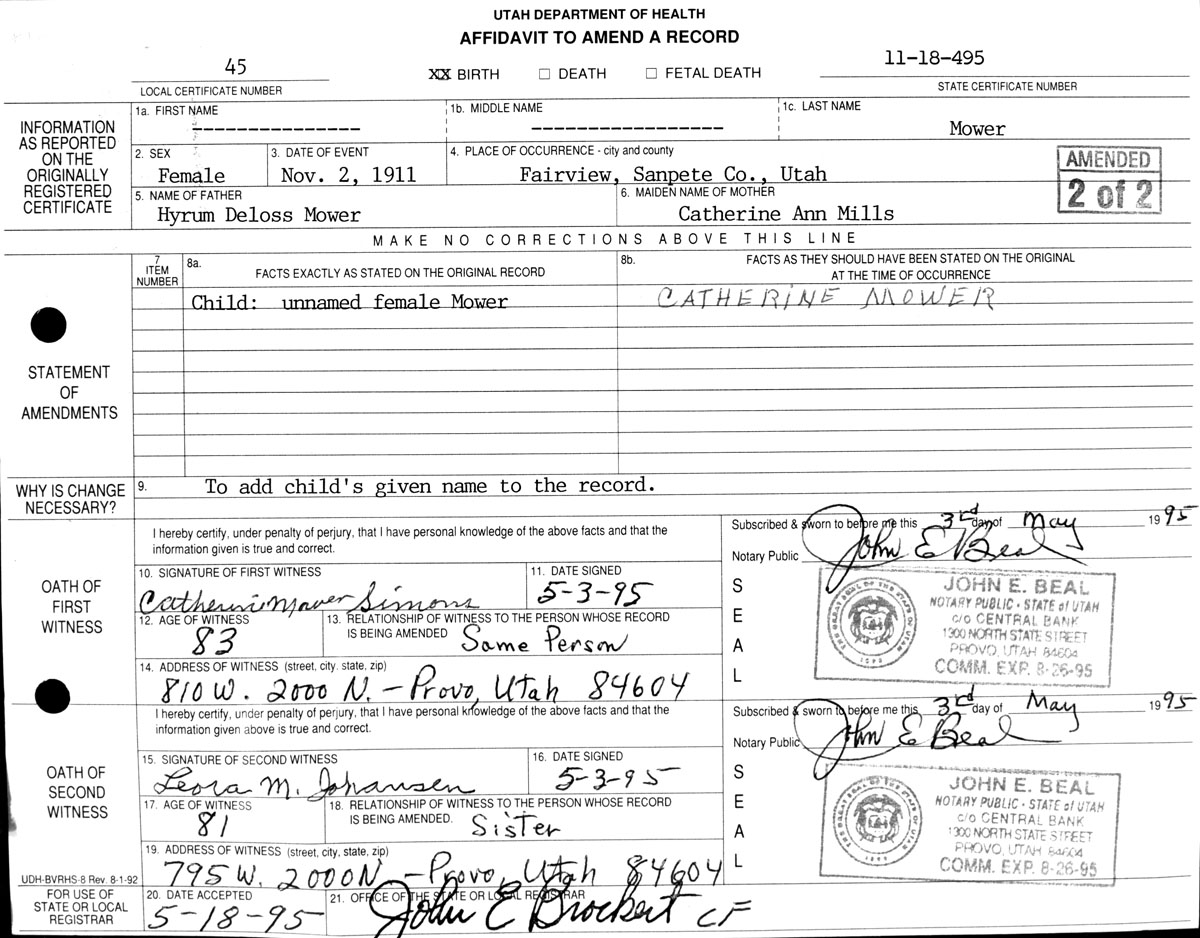 UTAH DEPARTMENT OF HEALTH
AFFIDAVIT TO AMEND A RECORD
45
LOCAL CERTIFICATE NUMBER
XX BIRTH ☐ DEATH ☐ FETAL DEATH
11-18-495
STATE CERTIFICATE NUMBER
INFORMATION
AS REPORTED
ON THE
ORIGINALLY
REGISTERED
CERTIFICATE
1a. FIRST NAME
----------------
1b. MIDDLE NAME
------------------
1c. LAST NAME
Mower
2. SEX
Female
3. DATE OF EVENT
Nov. 2, 1911
4. PLACE OF OCCURRENCE - city and county
Fairview, Sanpete Co., Utah
AMENDED
2 of 2
5. NAME OF FATHER
Hyrum Deloss Mower
6. MAIDEN NAME OF MOTHER
Catherine Ann Mills
MAKE NO CORRECTIONS ABOVE THIS LINE
STATEMENT
OF
AMENDMENTS
7
ITEM
NUMBER
8a.
FACTS EXACTLY AS STATED ON THE ORIGINAL RECORD
8b.
FACTS AS THEY SHOULD HAVE BEEN STATED ON THE ORIGINAL
AT THE TIME OF OCCURRENCE
Child: unnamed female Mower
CATHERINE MOWER
WHY IS CHANGE
NECESSARY?
9. To add child's given name to the record.
OATH OF
FIRST
WITNESS
I hereby certify, under penalty of perjury, that I have personal knowledge of the above facts and that the
information given is true and correct.
10. SIGNATURE OF FIRST WITNESS
Catherine Mower Simons
11. DATE SIGNED
5-3-95
12. AGE OF WITNESS
83
13. RELATIONSHIP OF WITNESS TO THE PERSON WHOSE RECORD
IS BEING AMENDED Same Person
14. ADDRESS OF WITNESS (street, city, state, zip)
810 W. 2000 N. - Provo, Utah 84604
Subscribed & sworn to before me this 3rd day of May 1995
Notary Public John E Beal
SEAL
JOHN E. BEAL
NOTARY PUBLIC • STATE of UTAH
c/o CENTRAL BANK
1300 NORTH STATE STREET
PROVO, UTAH 84604
COMM. EXP. 8-26-95
THE GREAT SEAL OF THE STATE OF UTAH
1896
OATH OF
SECOND
WITNESS
I hereby certify, under penalty of perjury, that I have personal knowledge of the above facts and that the
information given above is true and correct.
15. SIGNATURE OF SECOND WITNESS
Leora M. Johansen
16. DATE SIGNED
5-3-95
17. AGE OF WITNESS
81
18. RELATIONSHIP OF WITNESS TO THE PERSON WHOSE RECORD
IS BEING AMENDED. Sister
19. ADDRESS OF WITNESS (street, city, state, zip)
795 W. 2000 N. - Provo, Utah 84604
Subscribed & sworn to before me this 3rd day of May 1995
Notary Public John E Beal
SEAL
JOHN E. BEAL
NOTARY PUBLIC • STATE of UTAH
c/o CENTRAL BANK
1300 NORTH STATE STREET
PROVO, UTAH 84604
COMM. EXP. 8-26-95
THE GREAT SEAL OF THE STATE OF UTAH
1896
UDH-BVRHS-8 Rev. 8-1-92
FOR USE OF
STATE OR LOCAL
REGISTRAR
20. DATE ACCEPTED
5-18-95
21. OFFICE OF THE STATE OR LOCAL REGISTRAR
John E Brockert CF